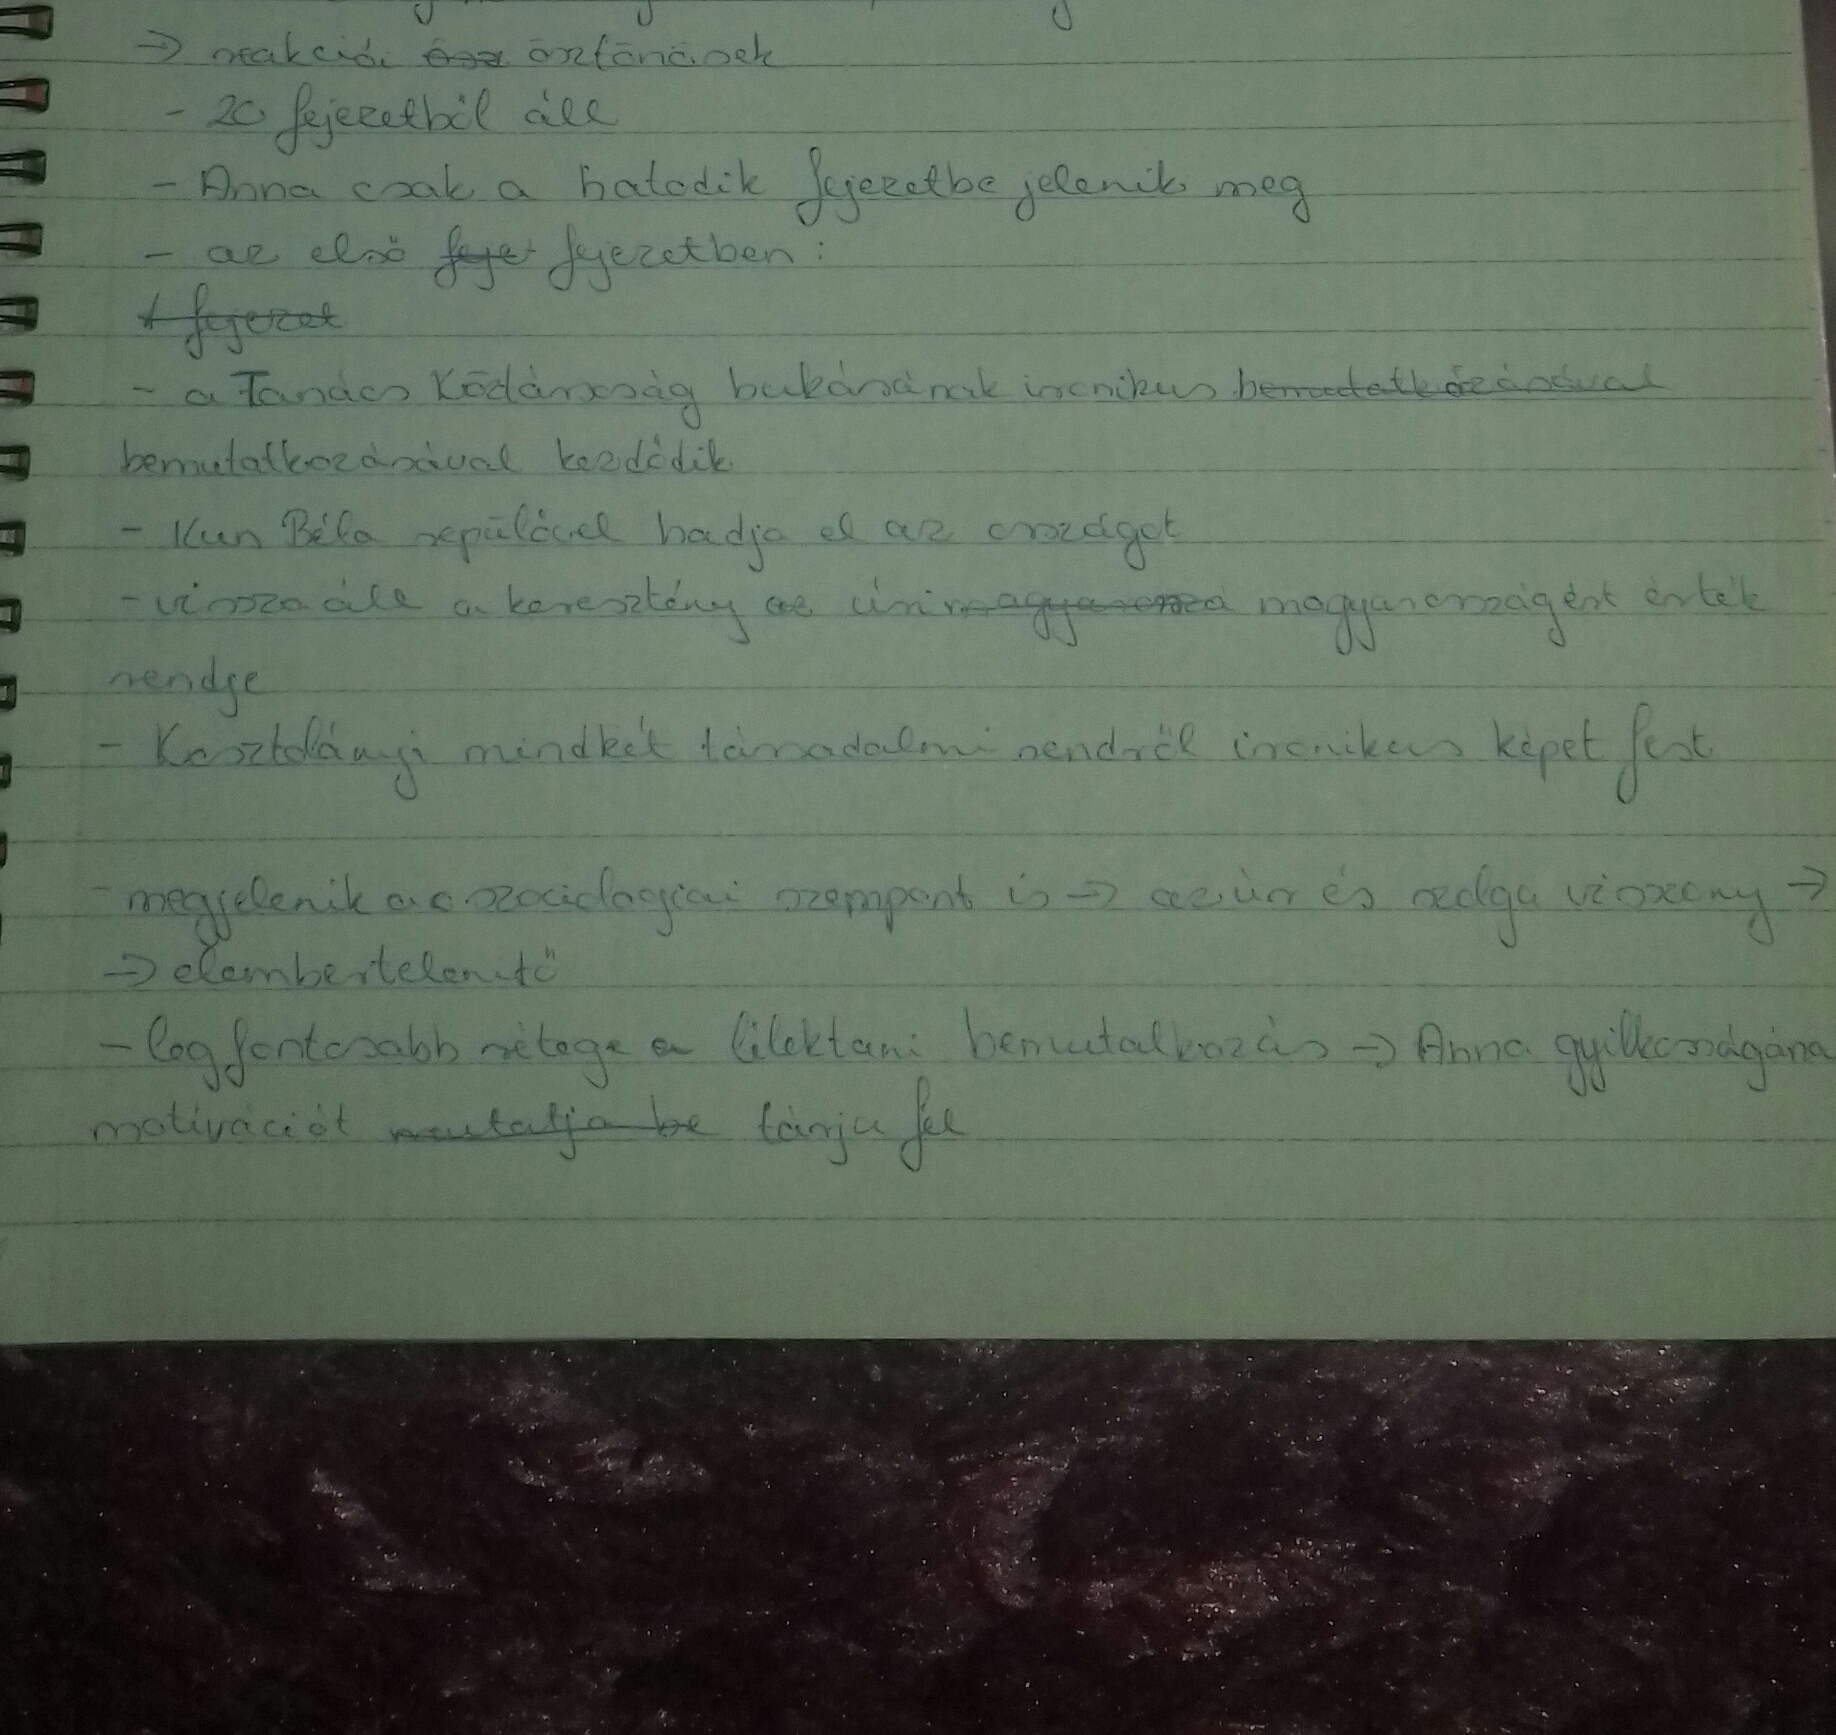 => reakciói ösz ösztönösek
- 20 fejezetből áll
- Anna csak a hatodik fejezetbe jelenik meg
- az első feje fejezetben:
1 fejezet
- a Tanács Köztársaság bukásának ironikus bemutatkozásával
bemutatkozásával kezdődik
- Kun Béla repülővel hadja el az országot
- vissza áll a keresztény úri magyarorszá magyarországért érték
rendje
- Kosztolányi mindkét társadalmi rendről ironikus képet fest
- megjelenik a szociologiai szempont is => az úr és szolga viszony =>
=> elembertelenítő
- legfontosabb rétege a lélektani bemutatkozás => Anna gyilkosságána
motivációt mutatja be tárja fel